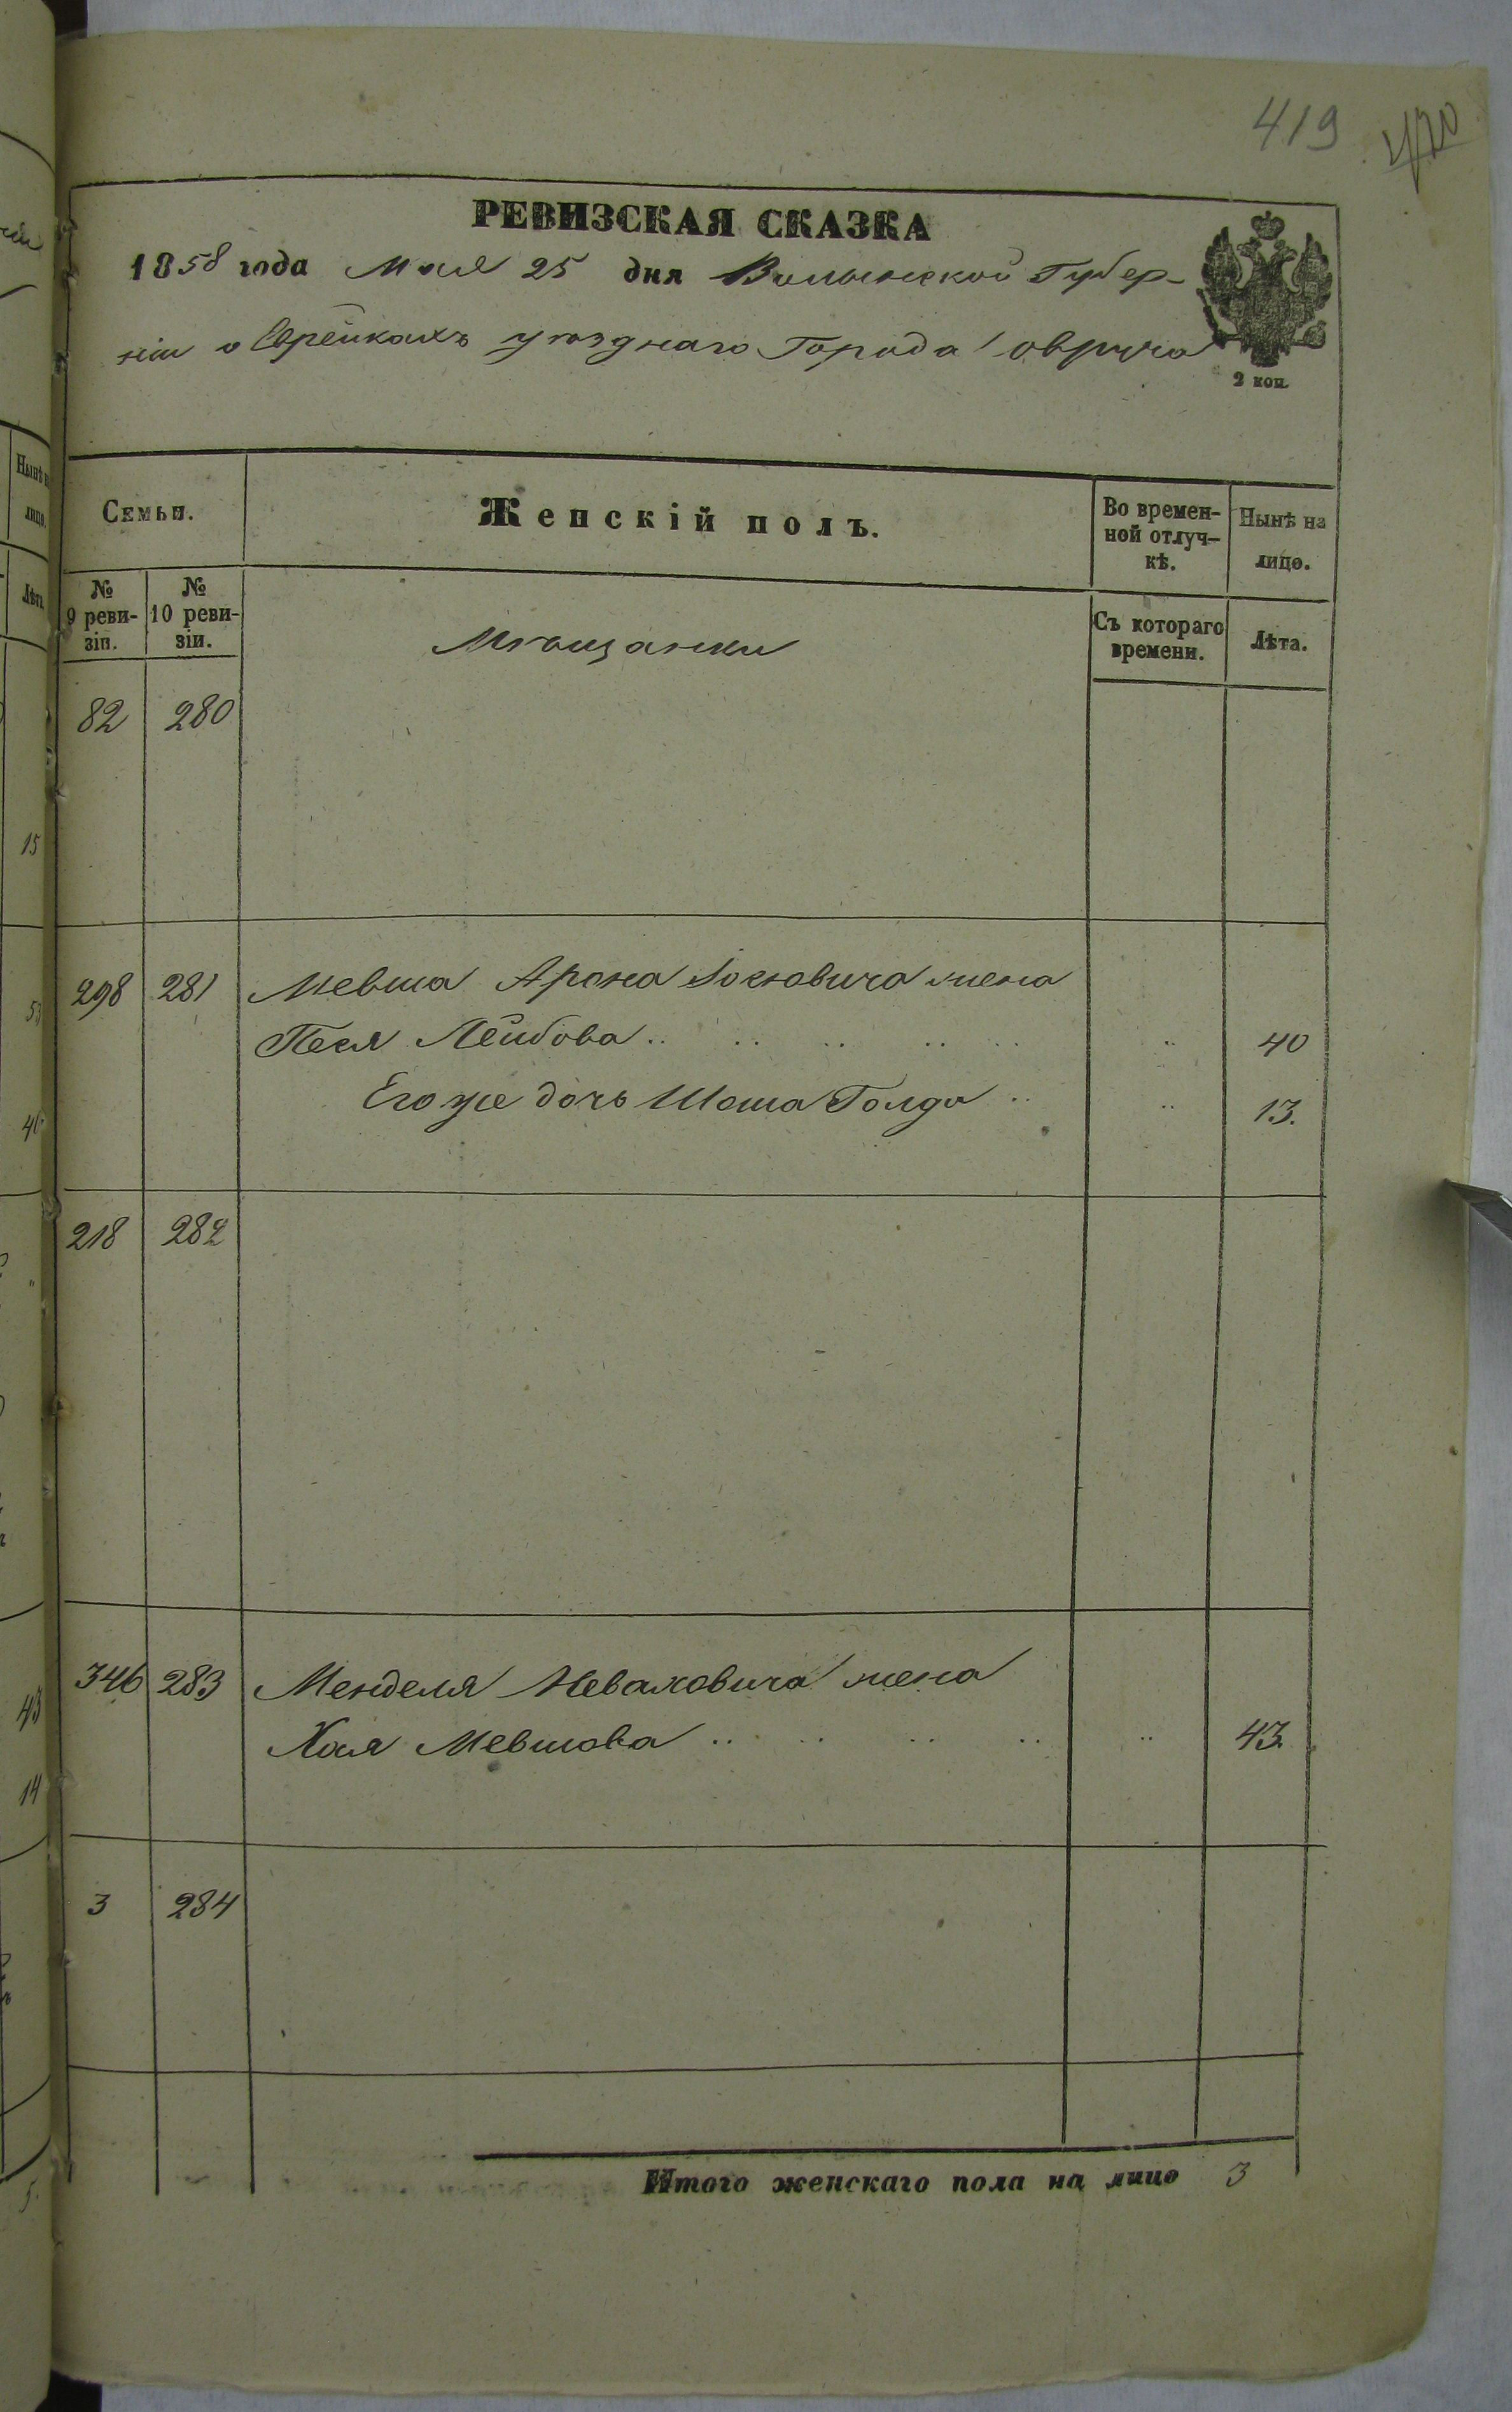 419 420
РЕВИЗСКАЯ СКАЗКА
1858 года Мая 25 дня Волынской Губер-
ніи о Еврейкахъ уѣзднаго Города Овруча
2 коп.
Семьи. Женскій полъ. Во времен-ной отлуч-кѣ. Нынѣ на лицо.
№ 9 реви-зіи. № 10 реви-зіи. Мѣщанки Съ котораго времени. Лѣта.
82 280
298 281 Мевша Арона Іосiовича жена
Песя Лейбова .. .. .. .. .. .. 40
Его же дочь Шоша Голда .. .. 13.
218 282
346 283 Менделя Неваховича жена
Хая Мевшова .. .. .. .. .. 43.
3 284
Итого женскаго пола на лицо 3
Нынѣ
лицо.
Лѣта
15
53
46
43
14
5.